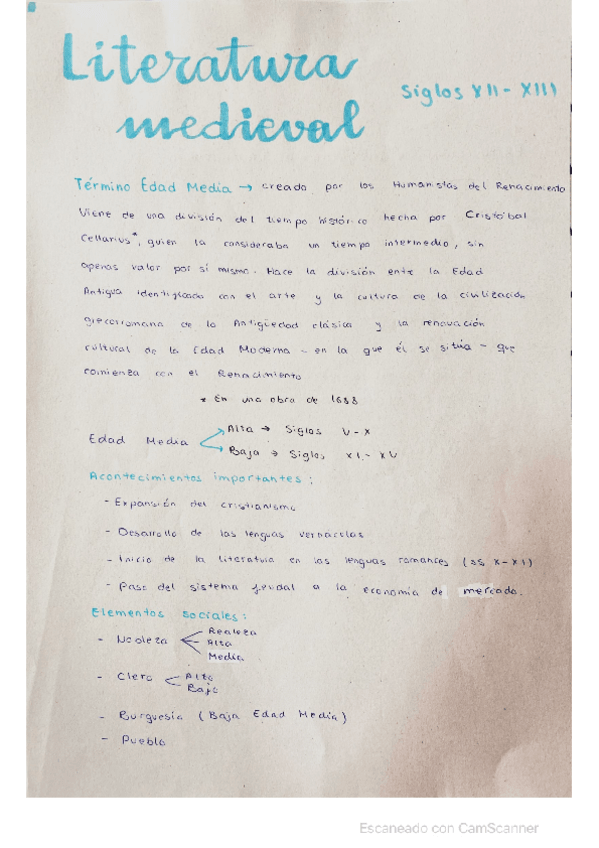 Literatura
medieval
Siglos XII - XIII
Término Edad Media → creado por los Humanistas del Renacimiento
Viene de una división del tiempo histórico hecha por Cristóbal
Cellarius*, quien la consideraba un tiempo intermedio, sin
apenas valor por sí mismo. Hace la división entre la Edad
Antigua identificada con el arte y la cultura de la civilización
grecorromana de la Antigüedad clásica y la renovación
cultural de la Edad Moderna - en la que él se sitúa - que
comienza con el Renacimiento
* En una obra de 1688
Edad Media
Alta → Siglos V - X
Baja → Siglos XI - XV
Acontecimientos importantes:
- Expansión del cristianismo
- Desarrollo de las lenguas vernáculas
- Inicio de la literatura en las lenguas romances (ss X - XI)
- Paso del sistema feudal a la economía de mercado.
Elementos sociales:
- Nobleza
Realeza
Alta
Media
- Clero
Alto
Bajo
- Burguesía (Baja Edad Media)
- Pueblo
Escaneado con CamScanner